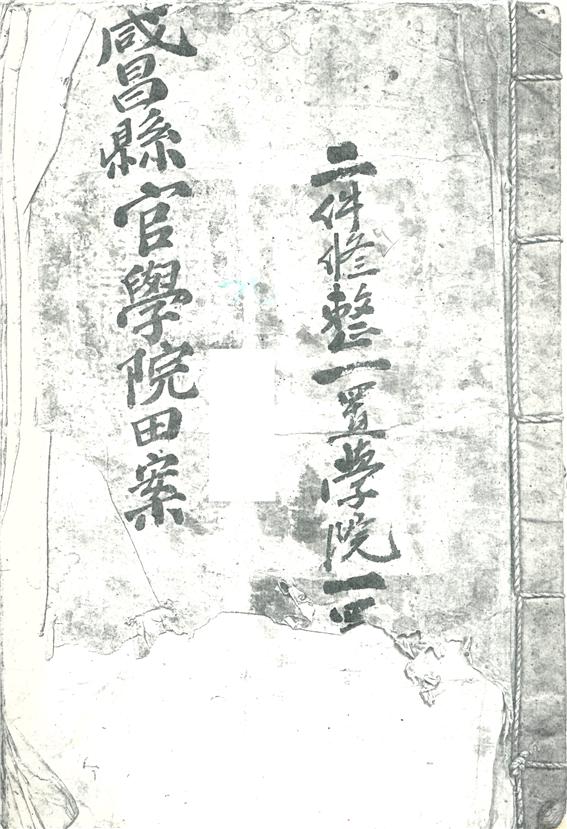 二件修整一置学院一
咸昌縣官學院田案